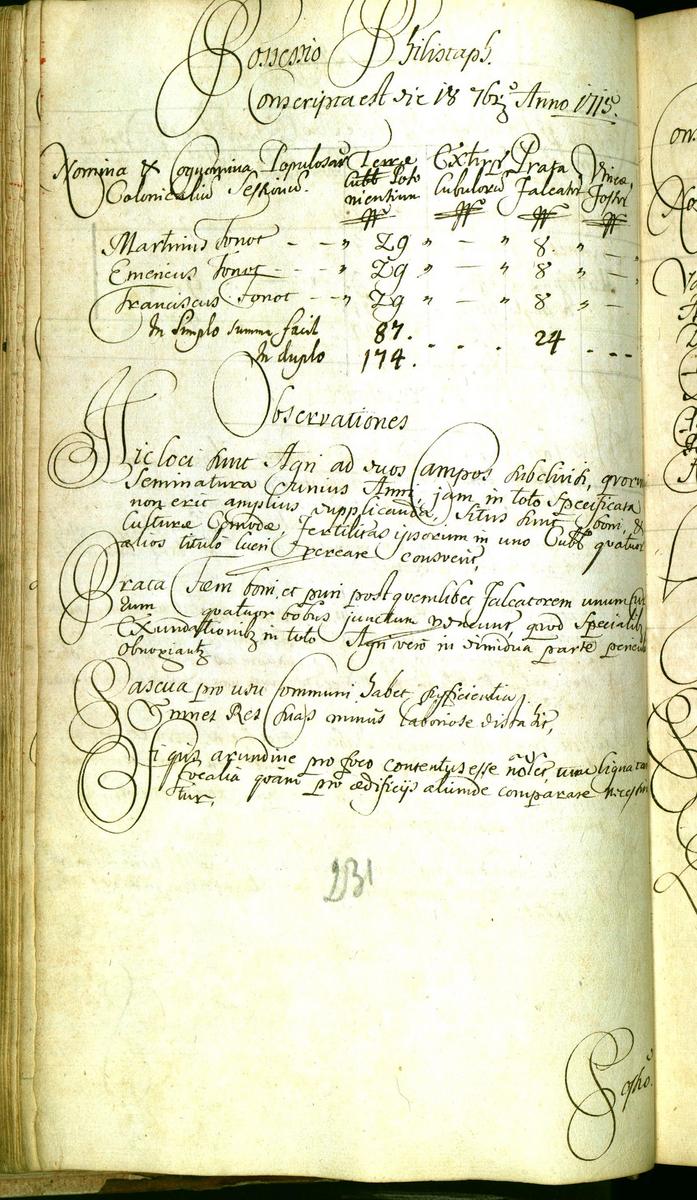 Possessio Philistaph.
Conscripta est die 18 7bris Anno 1715.
Nomina & Cognomina Populosarum Terrae Extirp. Prata Vineae
Colonicaliu Sessionu. Cubb Poso Cubuloru Falcat. Fossr.
nientium
ff ff ff ff
Martinus Fonot - - " 29 " - " 8. " -
Emericus Fonot - - " 29 " - " 8 " -
Franciscus Fonot - - " 29 " - " 8 " -
In Simplo summa facit 87. . . . 24 . . .
In duplo 174.
Observationes
Hic loci sunt Agri ad duos Campos subdivisi, quorum
Seminatura Unius Anni, jam in toto Specificata
non erit amplius dupplicanda, Situs sunt boni, &
Culturae Comodae, Fertilitas ipsorum in uno Cubb quatuor
alios titulo lucri procreare consvevit,
Prata Item boni, et puri post quemlibet Falcatorem unum
quatuor bobus junctum veneunt, quod specialib
Exundationib in toto Agri vero in dimidia parte
obnoxiantr
Pascua pro usu Communi habet sufficientia,
Omnes Res suas minus laboriose distrahit,
Si quis arundine pro foco contentus esse nollet, tum ligna tam
focalia quam pro aedificijs aliunde comparare
tur,
231